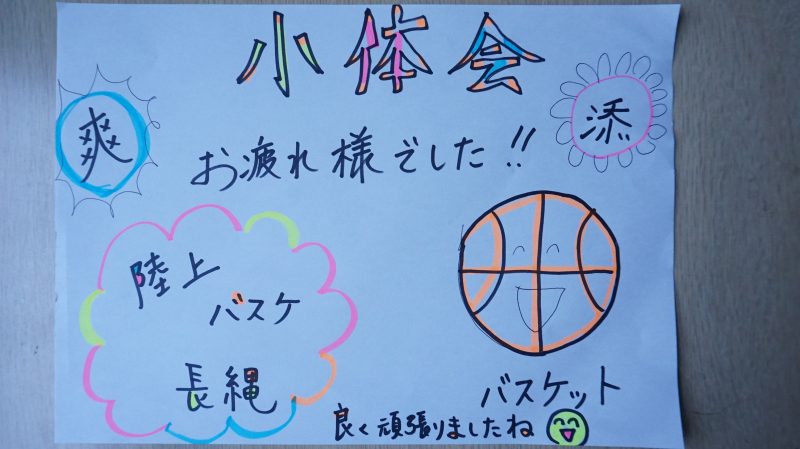 小体会
爽
添
お疲れ様でした!!
陸上
バスケ
長縄
バスケット
良く頑張りましたね